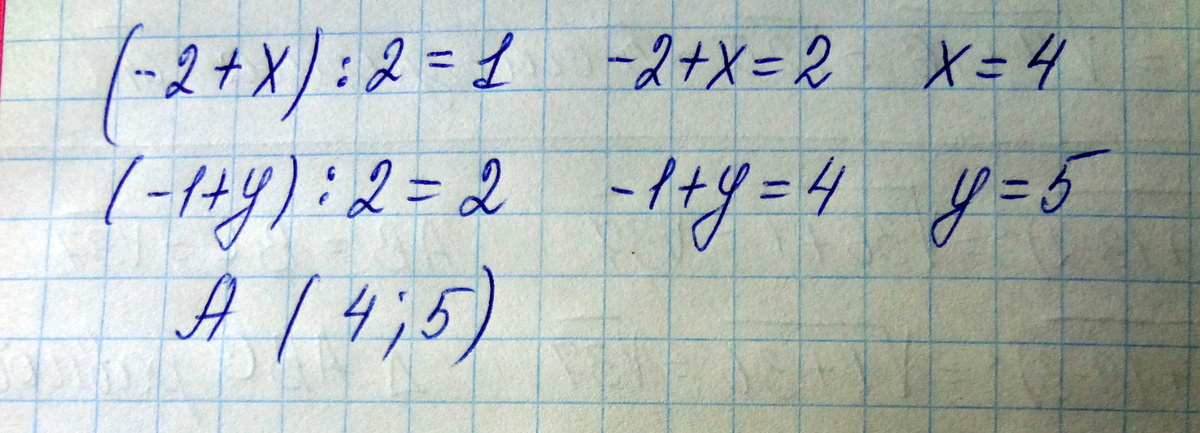 (-2+x):2=1 -2+x=2 x=4
(-1+y):2=2 -1+y=4 y=5
A (4;5)